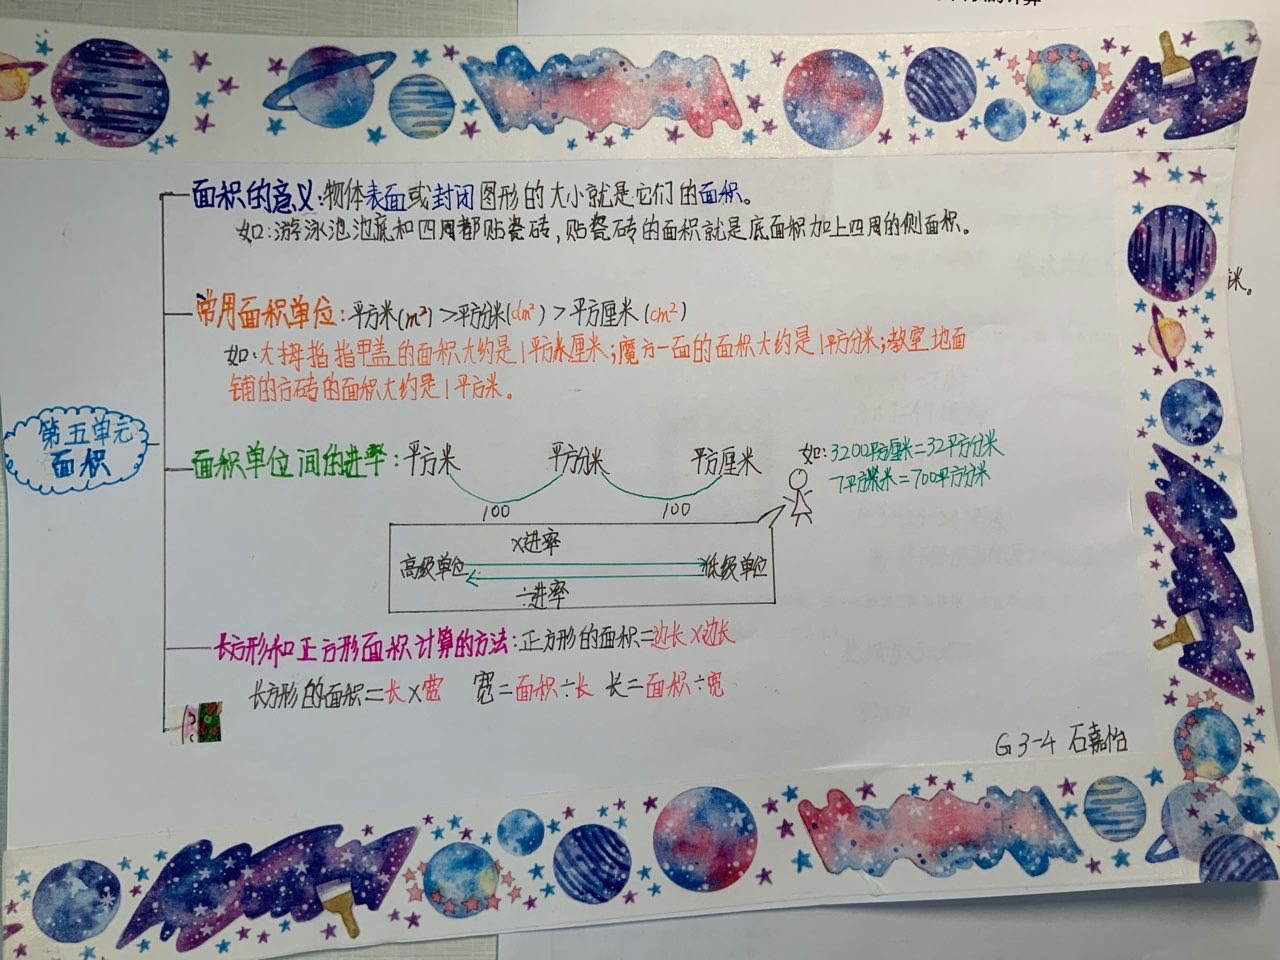 面积的意义:物体表面或封闭图形的大小就是它们的面积。
如:游泳池池底和四周都贴瓷砖,贴瓷砖的面积就是底面积加上四周的侧面积。
常用面积单位:平方米(m²)>平方分米(dm²)>平方厘米(cm²)
如:大拇指指甲盖的面积大约是1平方厘米;魔方一面的面积大约是1平方分米;教室地面
铺的方砖的面积大约是1平方米。
第五单元
面积
面积单位间的进率:平方米 平方分米 平方厘米
100 100
如:3200平方厘米=32平方分米
7平方米=700平方分米
×进率
高级单位 低级单位
÷进率
长方形和正方形面积计算的方法:正方形的面积=边长×边长
长方形的面积=长×宽 宽=面积÷长 长=面积÷宽
G3-4 石嘉怡
米。